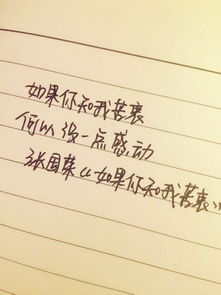 如果你知我苦衷
何以没一点感动
张国荣《如果你知我苦衷》